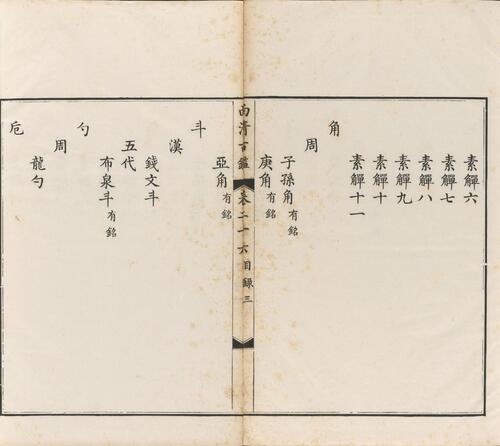 素觶六
素觶七
素觶八
素觶九
素觶十
素觶十一
角
周
子孫角有銘
庚角有銘
西清古鑑 卷二十六目錄 三
亞角有銘
斗
漢
錢文斗
五代
布泉斗有銘
勺
周
龍勺
卮